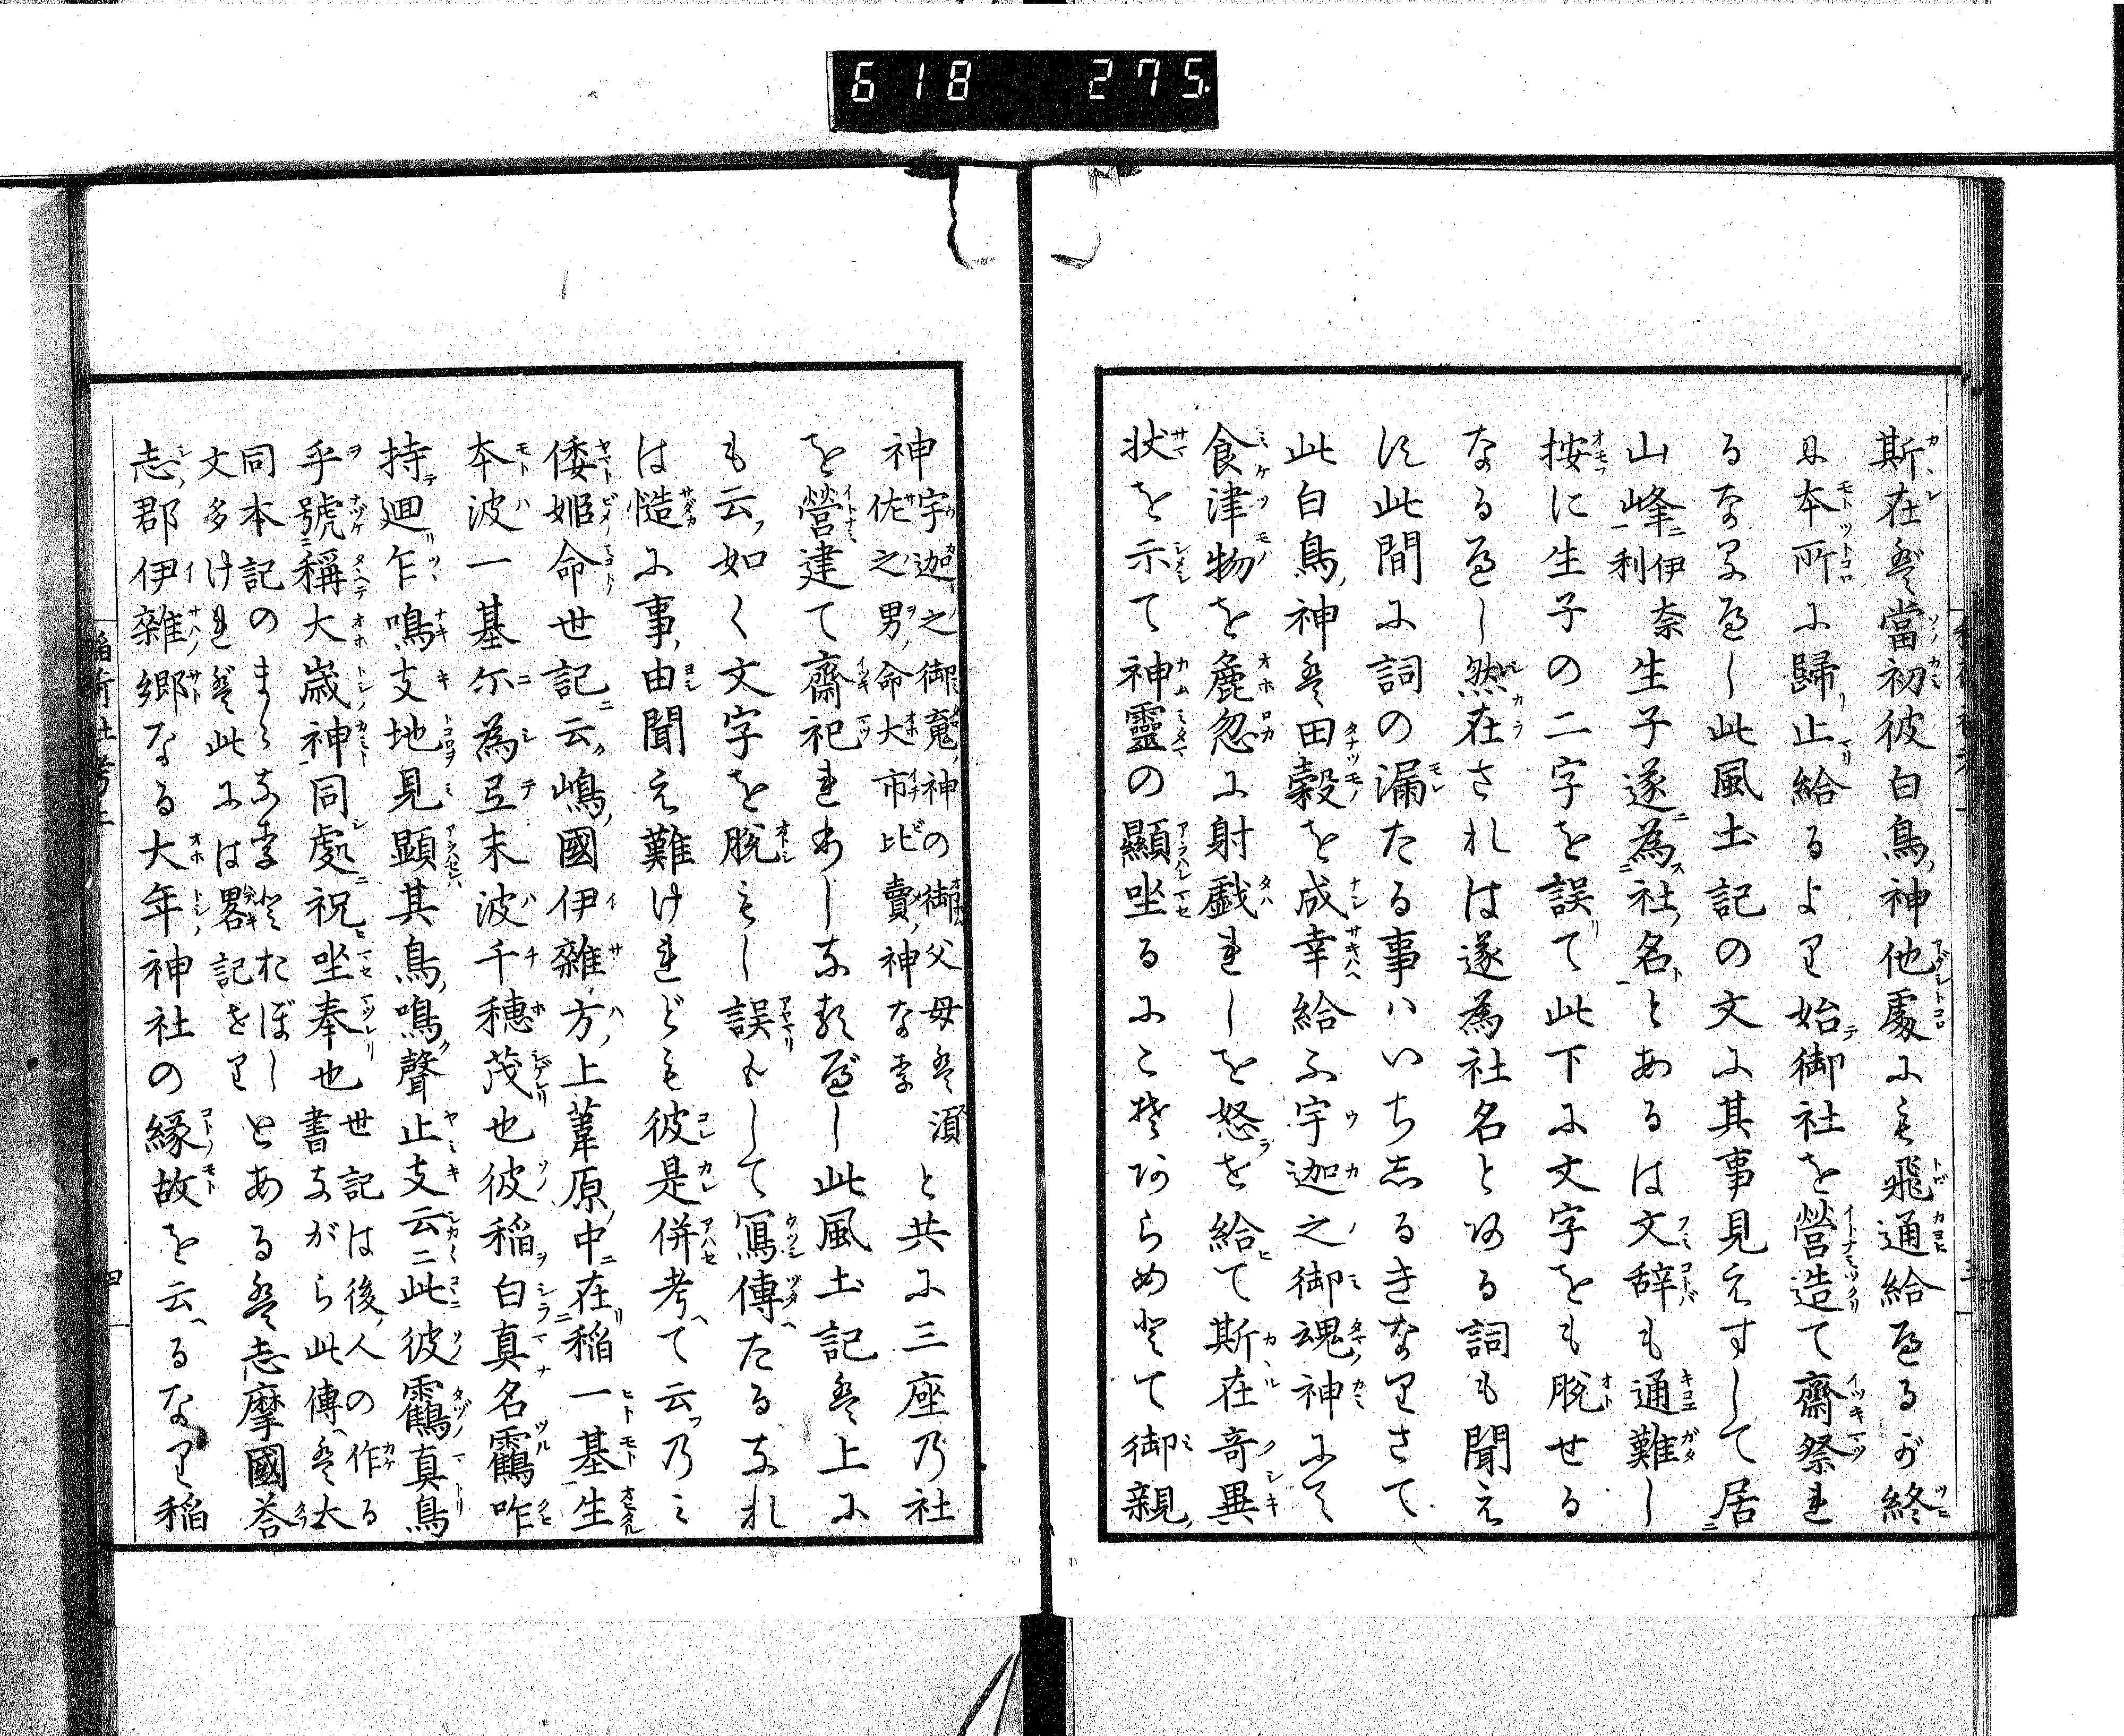 618 275
斯在は當初彼白鳥神他處にも飛通給へるが終
に本所に歸止給るより始御社を營造て齋祭れ
るなるへし此風土記の文に其事見えすして居
山峰伊奈利生子遂為社名とあるは文辞も通難し
按に生子の二字を誤て此下に文字をも脱せる
なるへし然在されは遂為社名とある詞も聞え
す此間に詞の漏たる事ハいちしるきなりさて
此白鳥神は田穀を成幸給ふ宇迦之御魂神にて
食津物を麁忽に射戯れしを怒を給て斯在奇異
状を示て神靈の顯坐るにこそあらめとて御親
神宇迦之御䰟神の御父母は須
佐之男命大市比賣神なり
と共に三座乃社
を營建て齋祀れりしなるへし此風土記は上に
も云如く文字を脱もし誤もして寫傳たるなれ
は慥に事由聞え難けれども彼是併考て云のミ
倭姫命世記云嶋國伊雜方上葦原中在稲一基生
本波一基尓為弖末波千穂茂也彼稲白真名鶴咋
持廻乍鳴支地見顕其鳥鳴聲止支云二此彼鶴真鳥
乎號稱大歳神同處祝坐奉也
世記は後人の作る
書ながら此傳は大
同本記のまゝなりとおぼし
文多けれは此には畧記せり
とある は志摩國答
志郡伊雜郷なる大年神社の縁故を云るなり稲
稲荷社考上
四